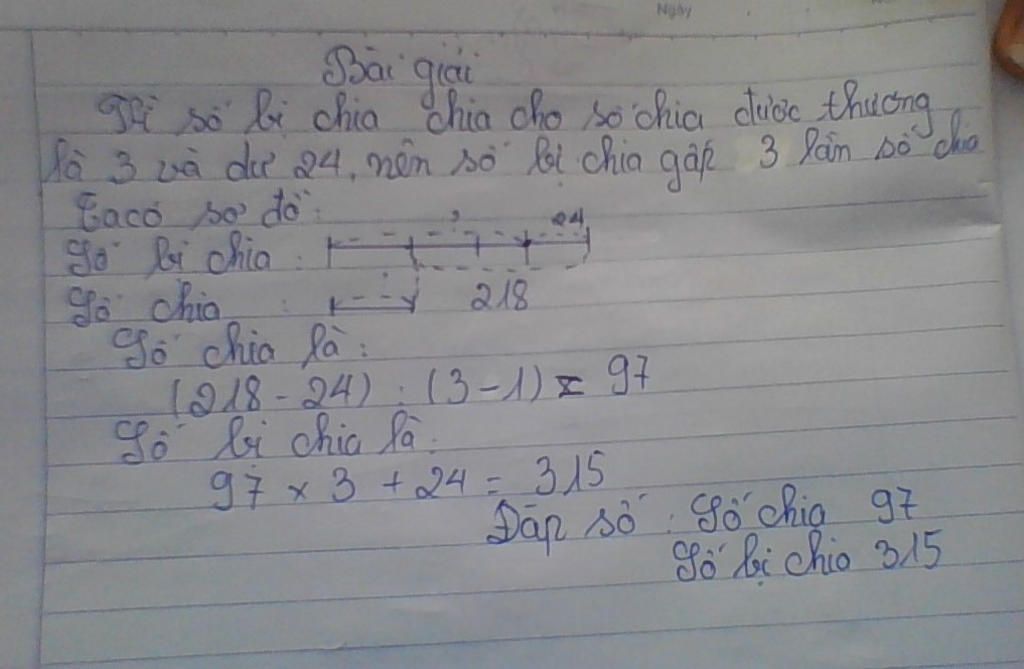 Ngày
Bài giải
Vì số bị chia chia cho số chia được thương
là 3 và dư 24, nên số bị chia gấp 3 lần số chia
Ta có sơ đồ:
? 24
Số bị chia :
Số chia : 218
Số chia là :
(218 - 24) : (3 - 1) = 97
Số bị chia là :
97 x 3 + 24 = 315
Đáp số : Số chia 97
Số bị chia 315